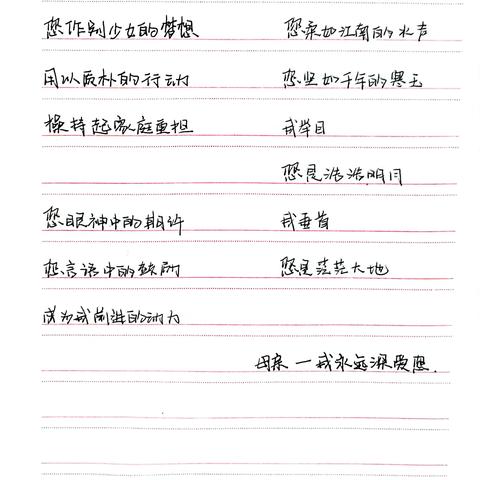 您作别少女的梦想
用以质朴的行动
操持起家庭重担
您眼神中的期许
您言语中的鼓励
成为我前进的动力
您柔如江南的水声
您坚如千年的寒玉
我举目
您是浩浩明月
我垂首
您是茫茫大地
母亲一我永远深爱您.